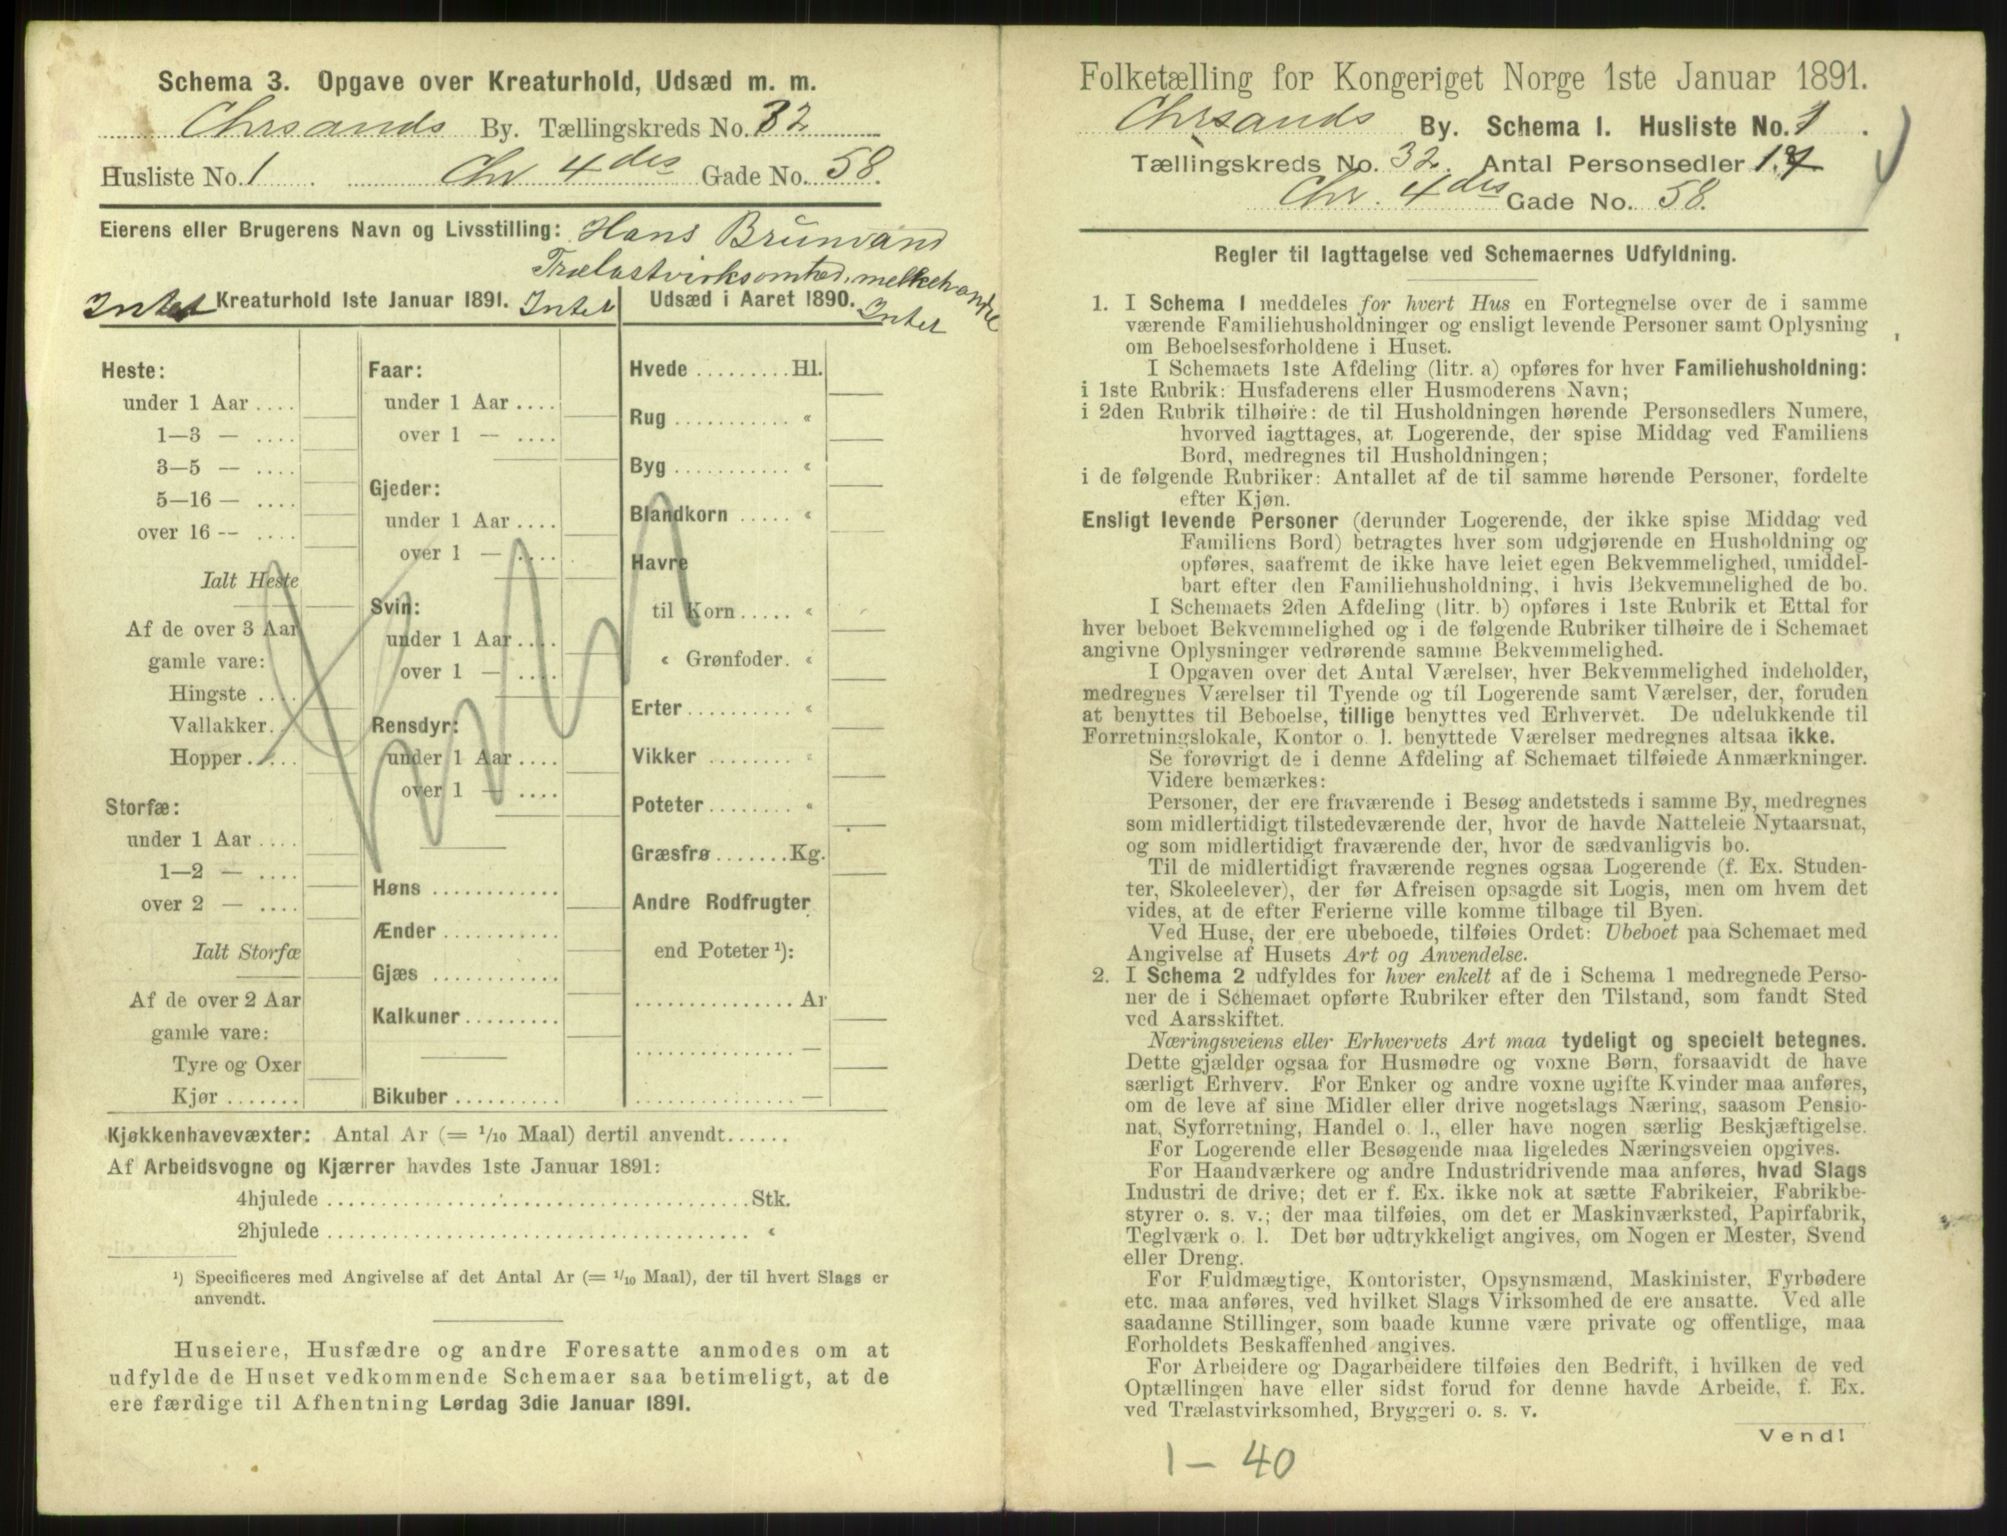 Schema 3. Opgave over Kreaturhold, Udsæd m. m.
Chrsands By. Tællingskreds No. 32
Husliste No. 1 Chr 4des Gade No. 58.
Eierens eller Brugerens Navn og Livsstilling: Hans Brunvand
Trælastvirksomhed, melkehandle
Intet Kreaturhold 1ste Januar 1891. Intet Udsæd i Aaret 1890. Intet
Heste:
under 1 Aar ....
1—3 — ....
3—5 — ....
5—16 — ....
over 16 — ....
Ialt Heste
Af de over 3 Aar
gamle vare:
Hingste ....
Vallakker.
Hopper.....
Storfæ:
under 1 Aar ....
1—2 — ....
over 2 — ....
Ialt Storfæ
Af de over 2 Aar
gamle vare:
Tyre og Oxer
Kjør .......
Faar:
under 1 Aar ....
over 1 — ....
Gjeder:
under 1 Aar ....
over 1 — ....
Svin:
under 1 Aar ....
over 1 — ....
Rensdyr:
under 1 Aar ....
over 1 — ....
Høns ............
Ænder ...........
Gjæs ............
Kalkuner.........
Bikuber ..........
Hvede .........Hl.
Rug ........... «
Byg ........... «
Blandkorn ..... «
Havre
til Korn ..... «
« Grønfoder. «
Erter .......... «
Vikker ......... «
Poteter ........ «
Græsfrø .......Kg.
Andre Rodfrugter
end Poteter ¹):
............... Ar
............... —
............... —
Kjøkkenhavevæxter: Antal Ar (= 1/10 Maal) dertil anvendt......
Af Arbeidsvogne og Kjærrer havdes 1ste Januar 1891:
4hjulede ........................................Stk.
2hjulede ........................................ «
¹) Specificeres med Angivelse af det Antal Ar (= 1/10 Maal), der til hvert Slags er
anvendt.
Huseiere, Husfædre og andre Foresatte anmodes om at
udfylde de Huset vedkommende Schemaer saa betimeligt, at de
ere færdige til Afhentning Lørdag 3die Januar 1891.
Folketælling for Kongeriget Norge 1ste Januar 1891.
Chrsands By. Schema I. Husliste No. 1.
Tællingskreds No. 32. Antal Personsedler 1
Chr. 4des Gade No. 58.
Regler til Iagttagelse ved Schemaernes Udfyldning.
1. I Schema 1 meddeles for hvert Hus en Fortegnelse over de i samme
værende Familiehusholdninger og ensligt levende Personer samt Oplysning
om Beboelsesforholdene i Huset.
I Schemaets 1ste Afdeling (litr. a) opføres for hver Familiehusholdning:
i 1ste Rubrik: Husfaderens eller Husmoderens Navn;
i 2den Rubrik tilhøire: de til Husholdningen hørende Personsedlers Numere,
hvorved iagttages, at Logerende, der spise Middag ved Familiens
Bord, medregnes til Husholdningen;
i de følgende Rubriker: Antallet af de til samme hørende Personer, fordelte
efter Kjøn.
Ensligt levende Personer (derunder Logerende, der ikke spise Middag ved
Familiens Bord) betragtes hver som udgjørende en Husholdning og
opføres, saafremt de ikke have leiet egen Bekvemmelighed, umiddel-
bart efter den Familiehusholdning, i hvis Bekvemmelighed de bo.
I Schemaets 2den Afdeling (litr. b) opføres i 1ste Rubrik et Ettal for
hver beboet Bekvemmelighed og i de følgende Rubriker tilhøire de i Schemaet
angivne Oplysninger vedrørende samme Bekvemmelighed.
I Opgaven over det Antal Værelser, hver Bekvemmelighed indeholder,
medregnes Værelser til Tyende og til Logerende samt Værelser, der, foruden
at benyttes til Beboelse, tillige benyttes ved Erhvervet. De udelukkende til
Forretningslokale, Kontor o. l. benyttede Værelser medregnes altsaa ikke.
Se forøvrigt de i denne Afdeling af Schemaet tilføiede Anmærkninger.
Videre bemærkes:
Personer, der ere fraværende i Besøg andetsteds i samme By, medregnes
som midlertidigt tilstedeværende der, hvor de havde Natteleie Nytaarsnat,
og som midlertidigt fraværende der, hvor de sædvanligvis bo.
Til de midlertidigt fraværende regnes ogsaa Logerende (f. Ex. Studen-
ter, Skoleelever), der før Afreisen opsagde sit Logis, men om hvem det
vides, at de efter Ferierne ville komme tilbage til Byen.
Ved Huse, der ere ubeboede, tilføies Ordet: Ubeboet paa Schemaet med
Angivelse af Husets Art og Anvendelse.
2. I Schema 2 udfyldes for hver enkelt af de i Schema 1 medregnede Perso-
ner de i Schemaet opførte Rubriker efter den Tilstand, som fandt Sted
ved Aarsskiftet.
Næringsveiens eller Erhvervets Art maa tydeligt og specielt betegnes.
Dette gjælder ogsaa for Husmødre og voxne Børn, forsaavidt de have
særligt Erhverv. For Enker og andre voxne ugifte Kvinder maa anføres,
om de leve af sine Midler eller drive nogetslags Næring, saasom Pensio-
nat, Syforretning, Handel o. l., eller have nogen særlig Beskjæftigelse.
For Logerende eller Besøgende maa ligeledes Næringsveien opgives.
For Haandværkere og andre Industridrivende maa anføres, hvad Slags
Industri de drive; det er f. Ex. ikke nok at sætte Fabrikeier, Fabrikbe-
styrer o. s. v.; der maa tilføies, om det er Maskinværksted, Papirfabrik,
Teglværk o. l. Det bør udtrykkeligt angives, om Nogen er Mester, Svend
eller Dreng.
For Fuldmægtige, Kontorister, Opsynsmænd, Maskinister, Fyrbødere
etc. maa anføres, ved hvilket Slags Virksomhed de ere ansatte. Ved alle
saadanne Stillinger, som baade kunne være private og offentlige, maa
Forholdets Beskaffenhed angives.
For Arbeidere og Dagarbeidere tilføies den Bedrift, i hvilken de ved
Optællingen have eller sidst forud for denne havde Arbeide, f. Ex.
ved Trælastvirksomhed, Bryggeri o. s. v.
Vend!
1 — 40